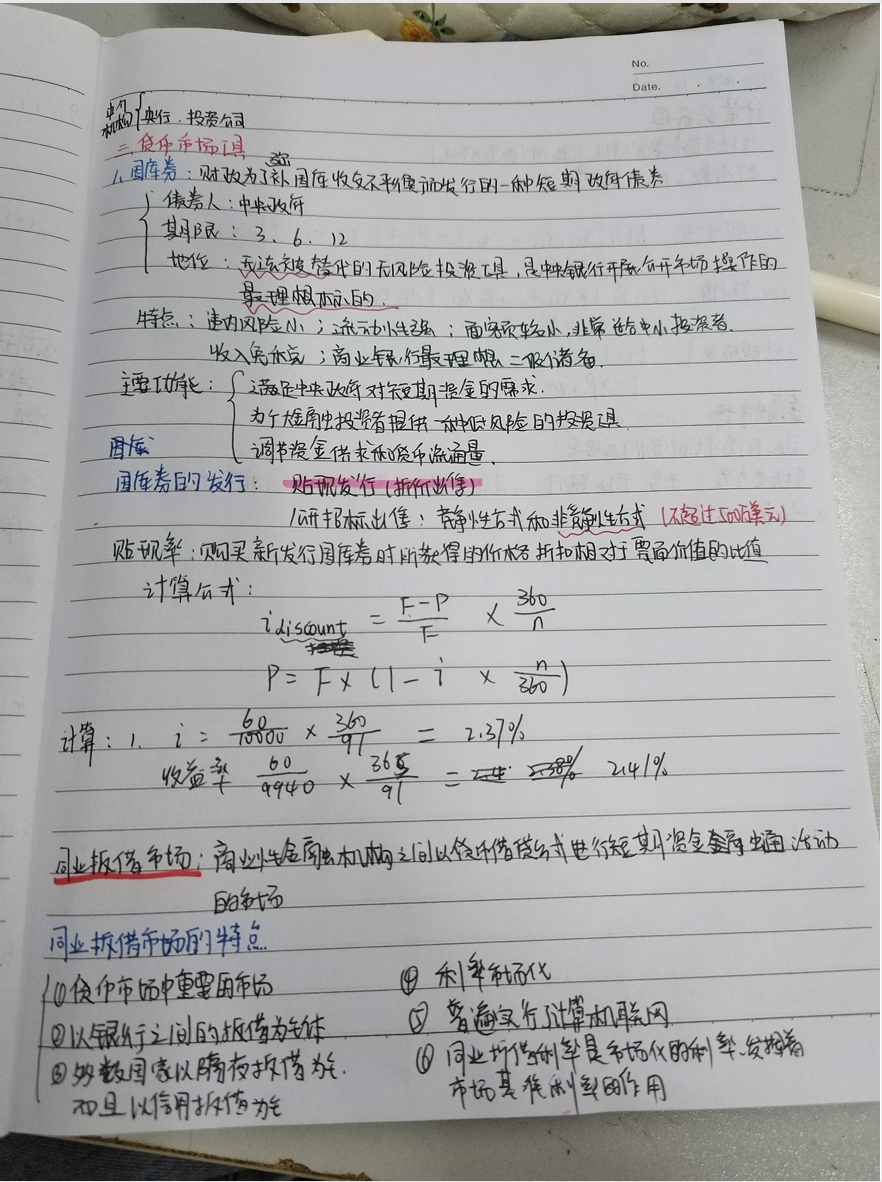 No.
Date.
中介机构 央行、投资公司
二、货币市场工具
1、国库券：财政为了弥补国库收支不平衡而发行的一种短期政府债券
债务人：中央政府
期限：3、6、12
地位：无法被替代的无风险投资工具，是中央银行开展公开市场操作的
最理想标的.
特点：违约风险小；流动性强；面额较小，非常适合中小投资者.
收入免税；商业银行最理想二级储备.
主要功能：满足中央政府对短期资金的需求.
为广大金融投资者提供一种低风险的投资工具.
调节资金供求和货币流通量.
国库
国库券的发行：贴现发行(折价出售)
公开招标出售：竞争性方式和非竞争性方式 (不超过500万美元)
贴现率：购买新发行国库券时所获得的价格折扣相对于票面价值的比值
计算公式：
i discount = F-P/F × 360/n
P = F × (1 - i × n/360)
计算：1. i = 60/10000 × 360/91 = 2.37%
收益率 60/9940 × 365/91 = 2.41%
同业拆借市场：商业性金融机构之间以货币借贷方式进行短期资金融通活动
的市场
同业拆借市场的特点
①货币市场中重要的市场
②以银行之间的拆借为主体
③多数国家以隔夜拆借为主.
而且以信用拆借为主
④ 利率市场化
⑤ 普遍实行计算机联网
⑥ 同业拆借利率是市场化的利率、发挥着
市场基准利率的作用